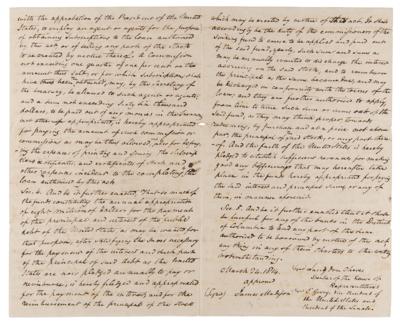 with the approbation of the President of the United
States, to employ an agent or agents for the purpose
of obtaining subscriptions to the loan authorised
by this act or of selling any part of the stock
to be created by virtue thereof. A commission
not exceeding one quarter of one per cent on the
amount thus sold, or for which subscriptions shall
have been thus obtained, may, by the Secretary of
the treasury, be allowed to such agents or agents;
and a sum not exceeding sixty six thousand
dollars, to be paid out of any monies in the treasury
not otherwise appropriated, is hereby appropriated
for paying the amount of such commission or
commissions as may be thus allowed, also for defray
ing the expenses of printing and issuing the subscrip
tions certificates, and certificates of stock and
other expenses incident to the completing the
loan authorised by this act.
Sec. 6. And be it further enacted, That so much of
the funds constituting the annual appropriation
of eight millions of dollars for the payment
of the principal and interest of the public
debt of the United States, as may be wanted for
that purpose, after satisfying the sums necessary
for the payment of the interest and such part
of the principal of said debt as the United
States are now pledged annually to pay or
reimburse, is hereby pledged and appropriated
for the payment of the interest and for the
reimbursement of the principal of the stock
which may be created by virtue of this act. It shall
accordingly be the duty of the commissioners of the
sinking fund to cause to be applied and paid out
of the said fund, yearly, such sum and sums as
may be annually wanted to discharge the interest
accruing on the said stock, and to reimburse
the principal as the same become due, and may
be discharged in conformity with the terms of the
loan; and they are further authorised to apply,
from time to time such sum or sums out of the
said fund, as they may think proper towards
redeeming by purchase and at a price not above
par the principal of said stock, or any part thereof.
And the faith of the United States is hereby
pledged to establish sufficient revenues for making
good any deficiency that may hereafter take
place in the funds hereby appropriated for paying
the said interest and principal sums, or any of
them, in manner aforesaid.
Sec. 8. And be it further enacted, That it shall
be lawful for any of the banks in the District
of Columbia to lend any part of the sum
authorised to be borrowed by virtue of this act
any thing in any of their charters to the contrary
notwithstanding.
March 24 1814
approved
(Signed) James Madison
Langdon Cheves
Speaker of the House of
Representatives
E. Gerry, Vice President of
the United States and
President of the Senate.